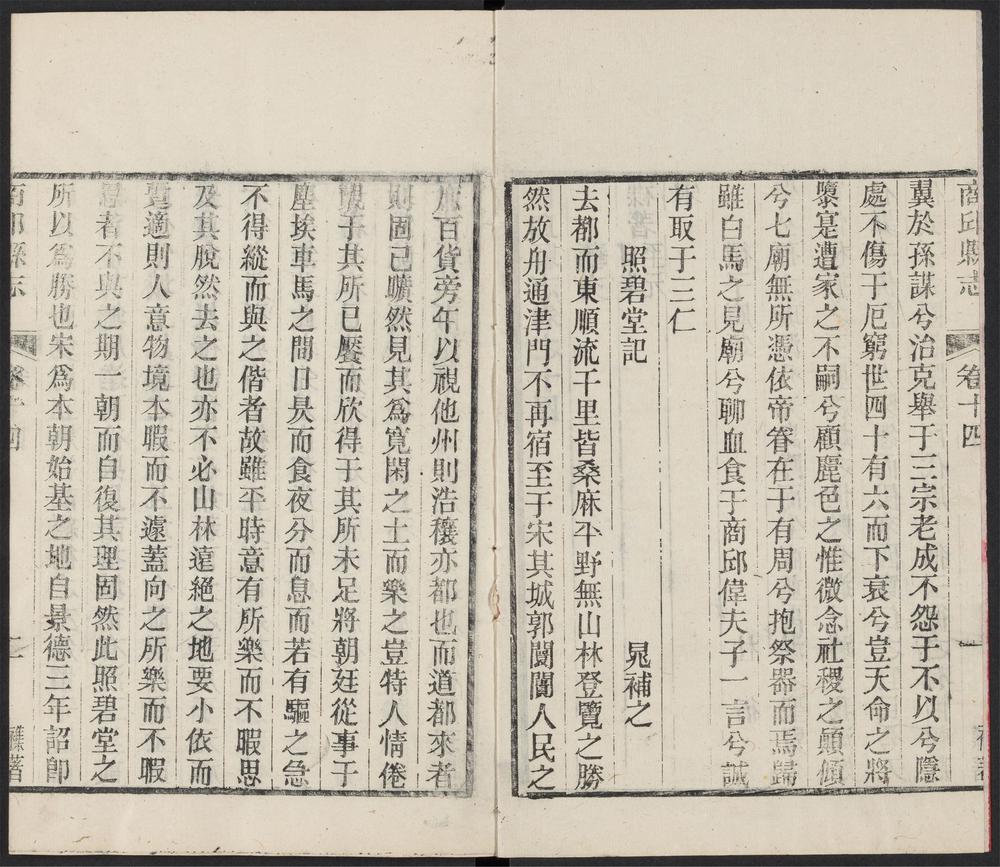 商邱縣志 卷十四 一
冀於孫謀兮治克舉于三宗老成不怨于不以兮隱
處不傷于厄窮世四十有六而下衰兮豈天命之將
墜寔遭家之不嗣兮顧麗色之惟微念社稷之顛傾
兮七廟無所憑依帝眷在于有周兮抱祭器而焉歸
雖白馬之見廟兮聊血食于商邱偉夫子一言兮誠
有取于三仁
照碧堂記 晁補之
去都而東順流千里皆桑麻平野無山林登覽之勝
然放舟通津門不再宿至于宋其城郭闤闠人民之
庶百貨旁午以視他州則浩穰亦都也而道都來者
則固已曠然見其為寬閑之土而樂之豈特人情倦
覯于其所已饜而欣得于其所未足將朝廷從事于
塵埃車馬之間日昃而食夜分而息而若有驅之急
不得縱而與之偕者故雖平時意有所樂而不暇思
及其脫然去之也亦不必山林遠絕之地要小依而
暫適則人意物境本暇而不遽蓋向之所樂而不暇
思者不與之期一朝而自復其理固然此照碧堂之
所以為勝也宋為本朝始基之地自景德三年詔卽
商邱縣志 卷十四 二 雜著